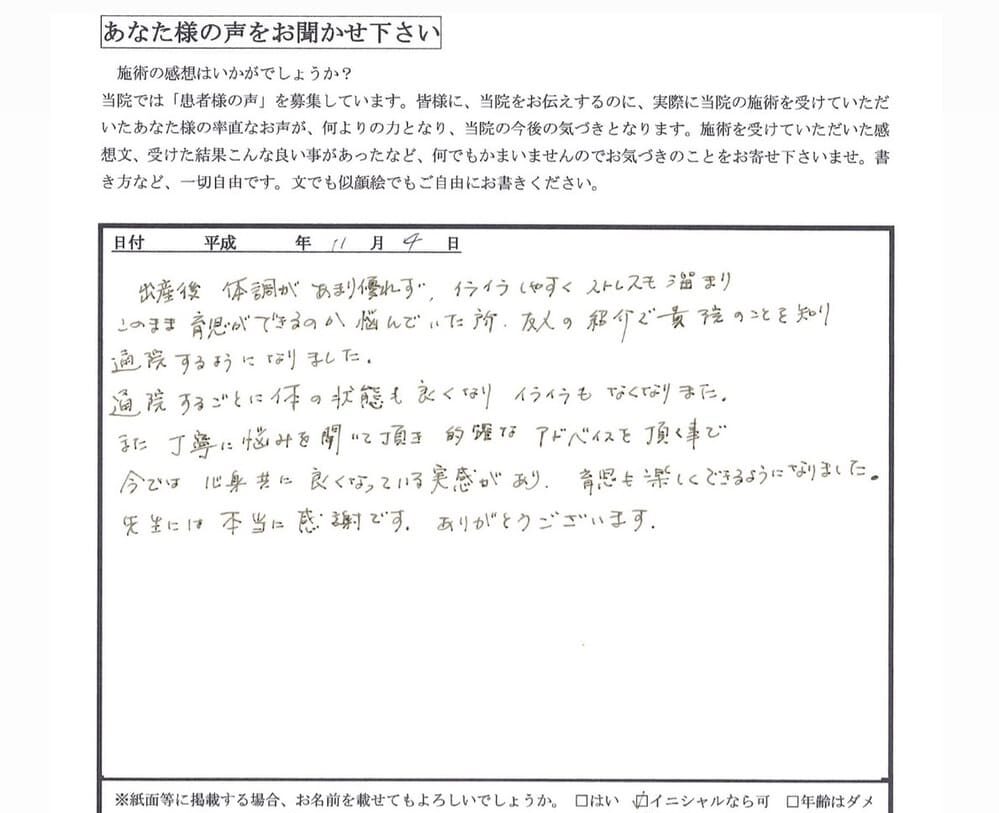 あなた様の声をお聞かせ下さい
施術の感想はいかがでしょうか？
当院では「患者様の声」を募集しています。皆様に、当院をお伝えするのに、実際に当院の施術を受けていただ
いたあなた様の率直なお声が、何よりの力となり、当院の今後の気づきとなります。施術を受けていただいた感
想文、受けた結果こんな良い事があったなど、何でもかまいませんのでお気づきのことをお寄せ下さいませ。書
き方など、一切自由です。文でも似顔絵でもご自由にお書きください。
日付 平成 年 11 月 4 日
出産後 体調があまり優れず、イライラしやすく ストレスも溜まり
このまま育児ができるのか悩んでいた所、友人の紹介で貴院のことを知り
通院するようになりました。
通院するごとに体の状態も良くなり イライラも なくなりまた。
また 丁寧に悩みを聞いて頂き 的確な アドバイスを頂く事で
今では 心身共に 良くなっている実感があり、育児も楽しくできるようになりました。
先生には 本当に 感謝です。ありがとうございます。
※紙面等に掲載する場合、お名前を載せてもよろしいでしょうか。 □はい ☑イニシャルなら可 □年齢はダメ